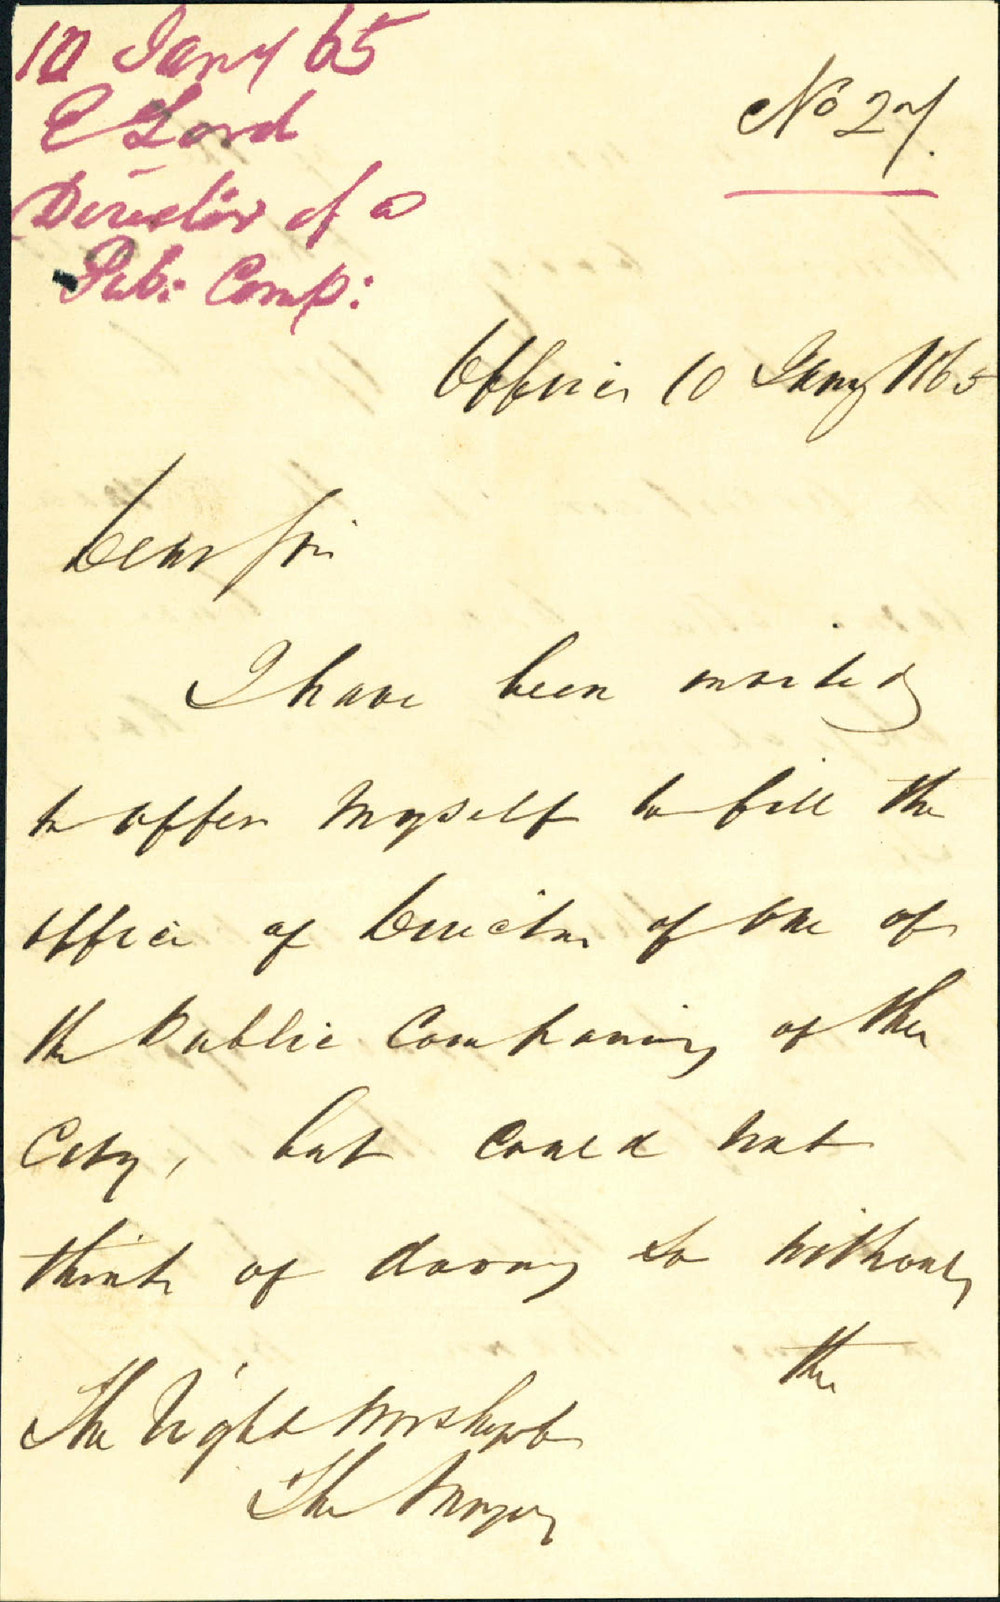 10 Jany 65
E Lord
Director of a
Pub: Comp:
No 27.
Office 10 Jany 1865
Dear Sir
I have been invited
to offer myself to fill the
office of Director of one of
the Public Companies of the
City, but could not
think of doing so without
the
The Right Worshipful
The Mayor